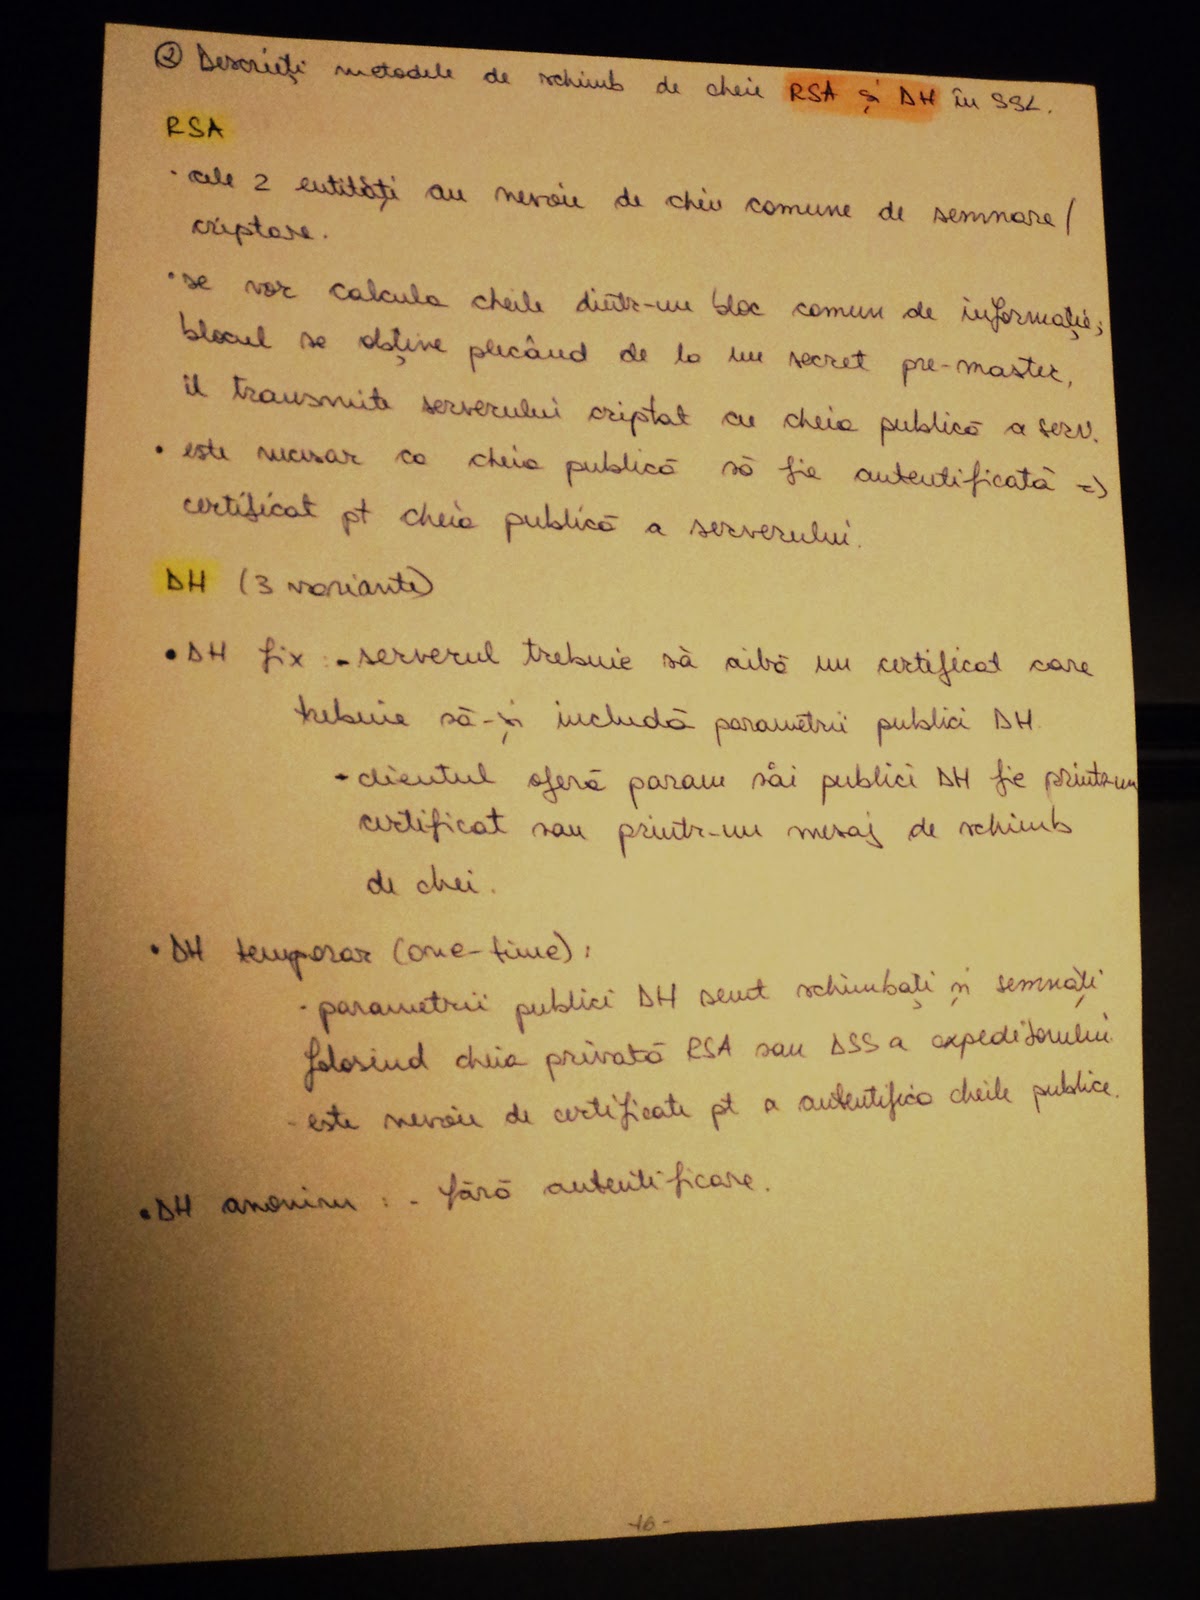 ② Descrieți metodele de schimb de cheie RSA și DH în SSL.
RSA
· cele 2 entități au nevoie de chei comune de semnare /
criptare.
· se vor calcula cheile dintr-un bloc comun de informație;
blocul se obține plecând de la un secret pre-master,
îl transmite serverului criptat cu cheia publică a serv.
· este necesar ca cheia publică să fie autentificată =>
certificat pt cheia publică a serverului.
DH (3 variante)
• DH fix : - serverul trebuie să aibă un certificat care
trebuie să-și includă parametrii publici DH.
- clientul oferă param săi publici DH fie printr-un
certificat sau printr-un mesaj de schimb
de chei.
• DH temporar (one-time) :
- parametrii publici DH sunt schimbați și semnați
folosind cheia privată RSA sau DSS a expeditorului.
- este nevoie de certificate pt a autentifica cheile publice.
• DH anonim : - fără autentificare.
-16-